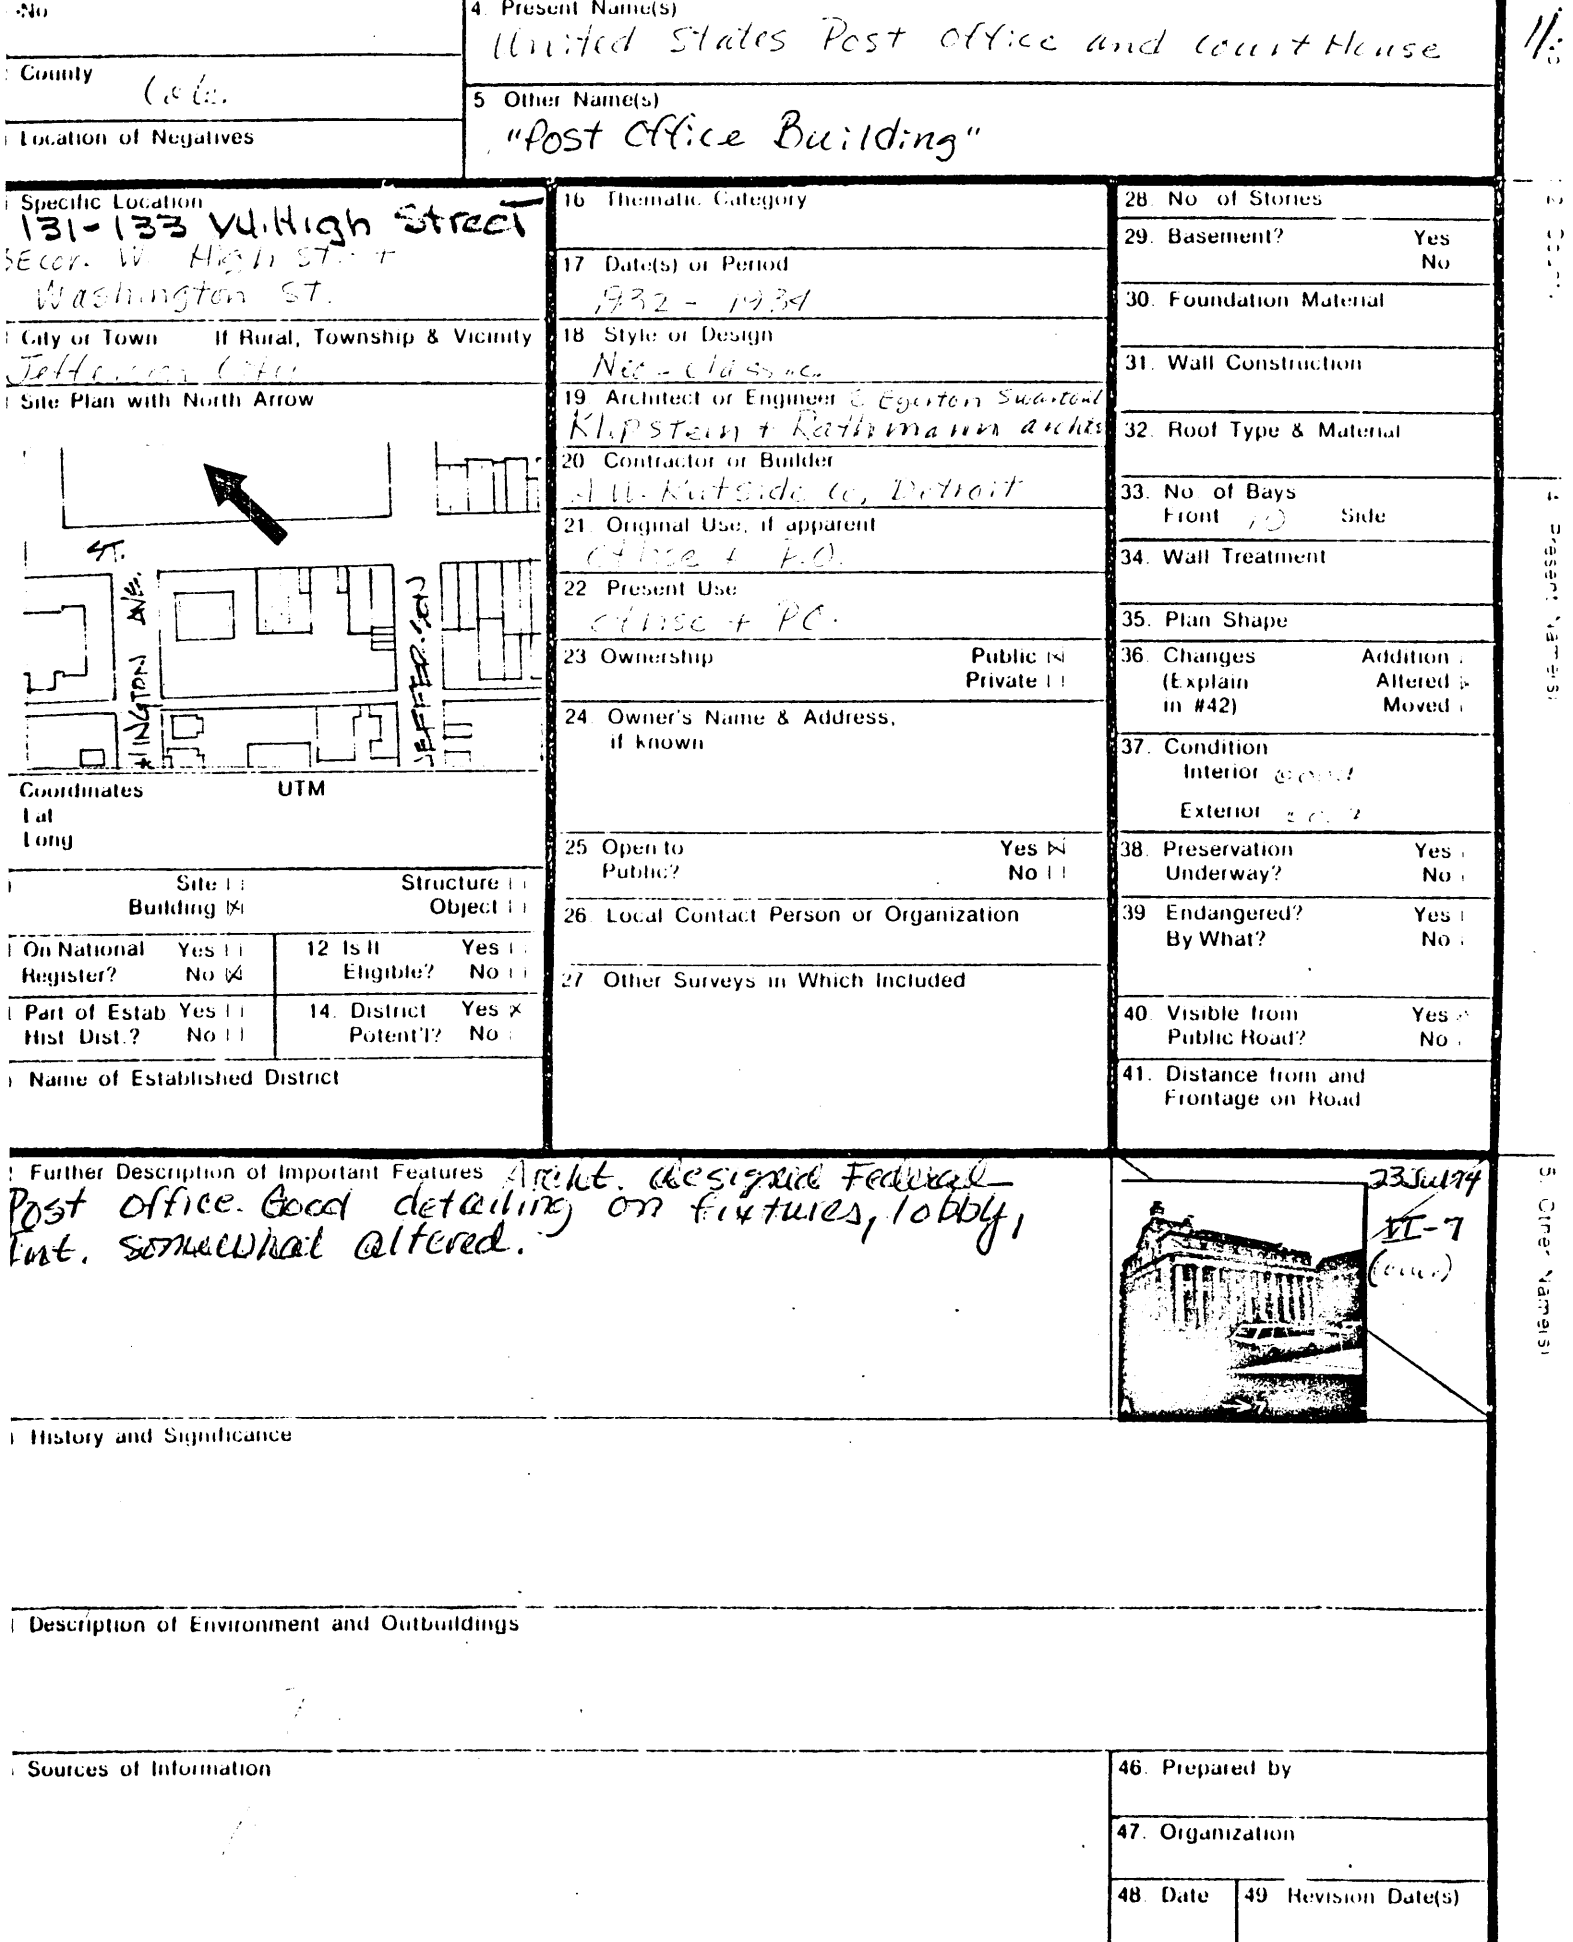 No
4. Present Name(s)
United States Post Office and Court House
County
Cole
5 Other Name(s)
"Post Office Building"
Location of Negatives
Specific Location
131-133 W. High Street
SE cor. W. High St. +
Washington St.
City or Town If Rural, Township & Vicinity
Jefferson City
Site Plan with North Arrow
ST.
AVE.
HINGTON
JEFFERSON
Coordinates UTM
Lat
Long
Site Structure
Building Object
On National Yes
Register? No
12 Is It Yes
Eligible? No
Part of Estab Yes
Hist Dist.? No
14. District Yes x
Potent'l? No
Name of Established District
16 Thematic Category
17 Date(s) or Period
1932 - 1934
18 Style or Design
Neo-classic
19. Architect or Engineer Egerton Swartout
Klipstein + Rathmann archts
20 Contractor or Builder
Co, Detroit
21. Original Use, if apparent
office + P.O.
22 Present Use
office + PO.
23 Ownership Public
Private
24. Owner's Name & Address,
if known
25 Open to Yes
Public? No
26. Local Contact Person or Organization
27 Other Surveys in Which Included
28. No of Stories
29. Basement? Yes
No
30. Foundation Material
31. Wall Construction
32. Roof Type & Material
33. No of Bays
Front 10 Side
34. Wall Treatment
35. Plan Shape
36. Changes Addition
(Explain Altered
in #42) Moved
37. Condition
Interior good
Exterior
38. Preservation Yes
Underway? No
39 Endangered? Yes
By What? No
40. Visible from Yes
Public Road? No
41. Distance from and
Frontage on Road
Further Description of Important Features Archt. designed Federal
Post Office. Good detailing on fixtures, lobby,
Int. somewhat altered.
23 Jul 94
VI-7
(over)
History and Significance
Description of Environment and Outbuildings
Sources of Information
46. Prepared by
47. Organization
48. Date
49 Revision Date(s)
4 Present Name(s)
5. Other Name(s)